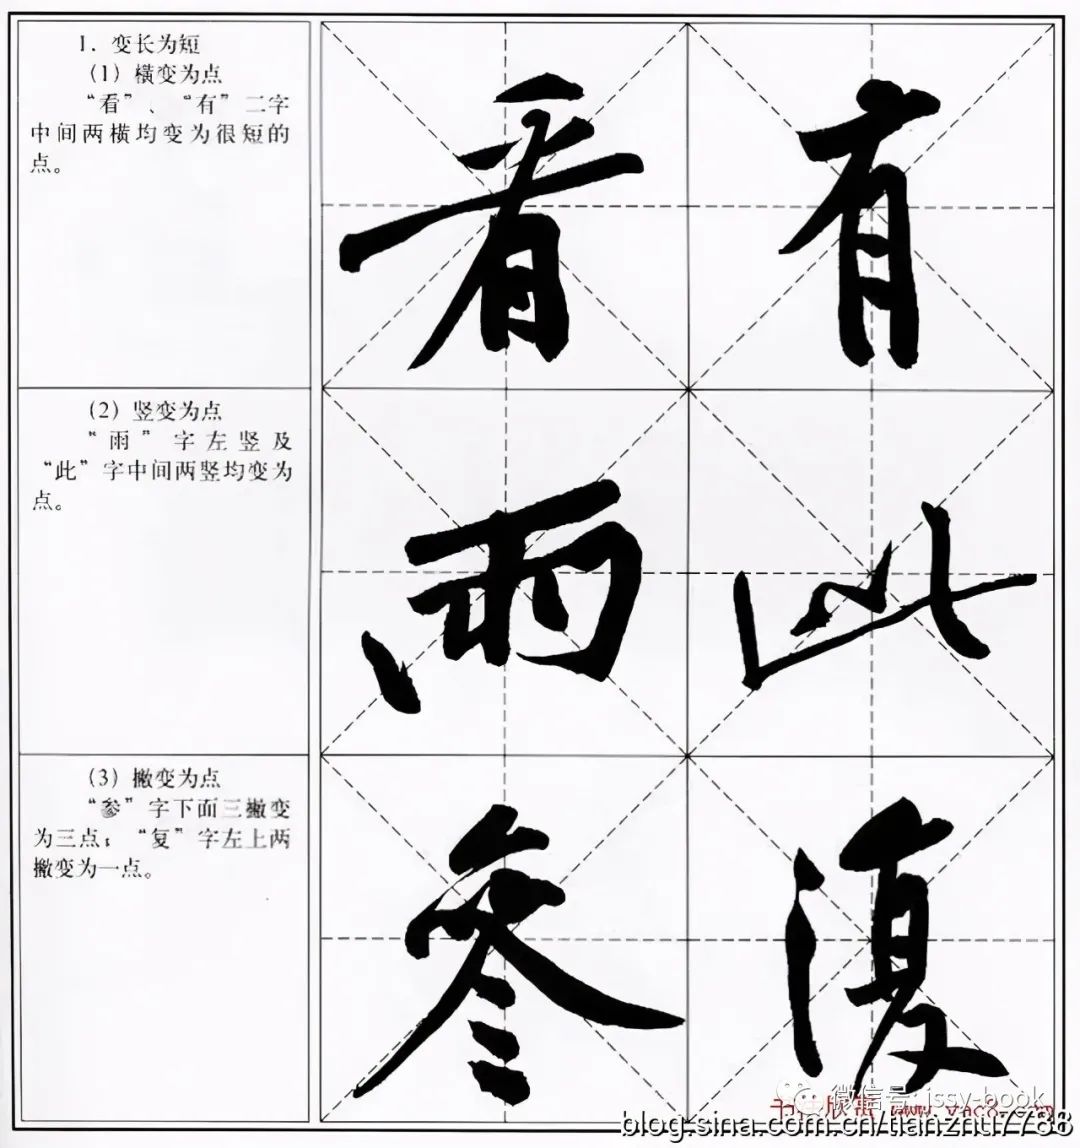 1. 变长为短
（1）横变为点
“看”、“有”二字
中间两横均变为很短的
点。
看有
（2）竖变为点
“雨”字左竖及
“此”字中间两竖均变为
点。
雨此
（3）撇变为点
“参”字下面三撇变
为三点；“复”字左上两
撇变为一点。
參復
微信号: jssy-book
blog.sina.com.cn/tianzhu7788